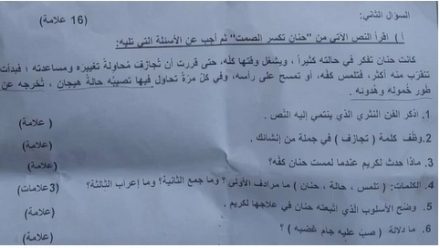 السؤال الثاني: (16 علامة)
أ ) اقرأ النص الآتي من "حنان تكسر الصمت" ثم أجب عن الأسئلة التي تليه:
كانت حنان تفكر في حالته كثيراً ، ويشغل وقتها كلّه، حتى قررت أن تجازف مُحاولة تغييره ومساعدته ؛ فبدأت
تتقرب منه أكثر، فتلمس كفّه، أو تمسح على رأسه، وفي كل مرّة تحاول فيها تصيبُه حالة هيجان ، تُخرجه عن
طور خُموله وهُدوئه .
1. اذكر الفن النثري الذي ينتمي إليه النّص . (علامة)
2. وظّف كلمة ( تجازف ) في جملة من إنشائك . (علامة)
3. ماذا حدث لكريم عندما لمست حنان كفّه؟ (علامة)
4. الكلمات: ( تلمس ، حالة ، حنان ) ما مرادف الأولى ؟ وما جمع الثانية؟ وما إعراب الثالثة؟ (3علامات)
5. وضّح الأسلوب الذي اتبعته حنان في علاجها لكريم . (علامة)
6. ما دلالة ( صبّ عليه جام غضبه ) ؟ (علامة)